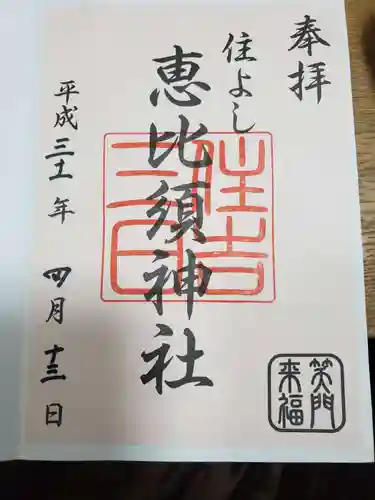 奉拝
住よし
恵比須神社
平成三十一年 四月十三日
住吉
笑門
来福